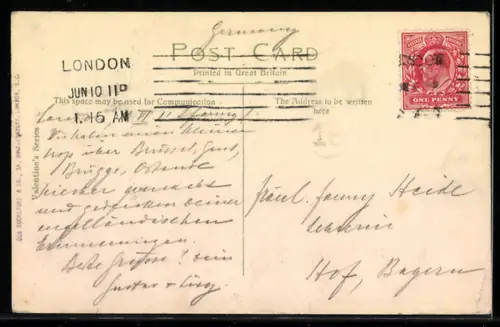 Germany
POST CARD
Printed in Great Britain
LONDON
JUN 10 11P
1.15 AM
This space may be used for Communication
The Address to be written
here
ONE PENNY
Valentine's Series
Wir haben einen kleinen
über Brüssel, Gent,
Brügge, Ostende
hierher gemacht
und gedenken Deiner
engelländischen
Erinnerungen.
Beste Grüsse! Dein
Gustav +
Fräul. Fanny Heide
Hof, Bayern